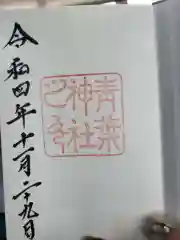 青葉
神社
令和四年十一月二十九日